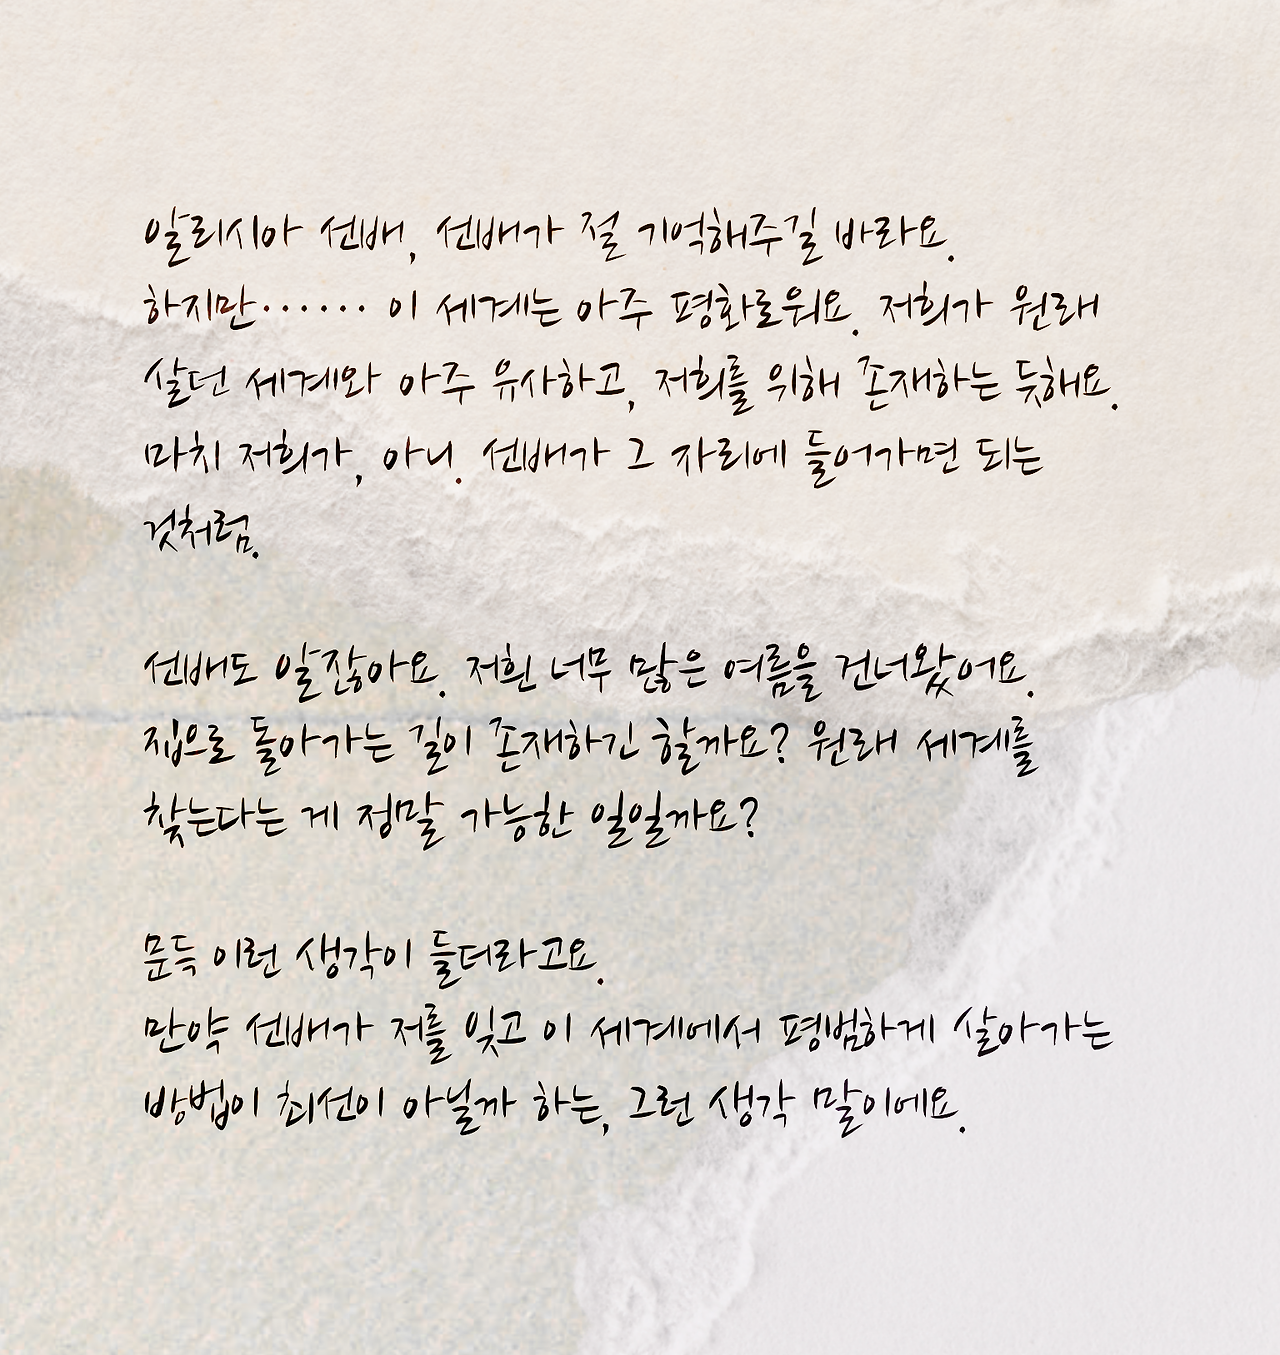 알리시아 선배, 선배가 절 기억해주길 바라요.
하지만…… 이 세계는 아주 평화로워요. 저희가 원래
살던 세계와 아주 유사하고, 저희를 위해 존재하는 듯해요.
마치 저희가, 아니. 선배가 그 자리에 들어가면 되는
것처럼.
선배도 알잖아요. 저흰 너무 많은 여름을 건너왔어요.
집으로 돌아가는 길이 존재하긴 할까요? 원래 세계를
찾는다는 게 정말 가능한 일일까요?
문득 이런 생각이 들더라고요.
만약 선배가 저를 잊고 이 세계에서 평범하게 살아가는
방법이 최선이 아닐까 하는, 그런 생각 말이에요.